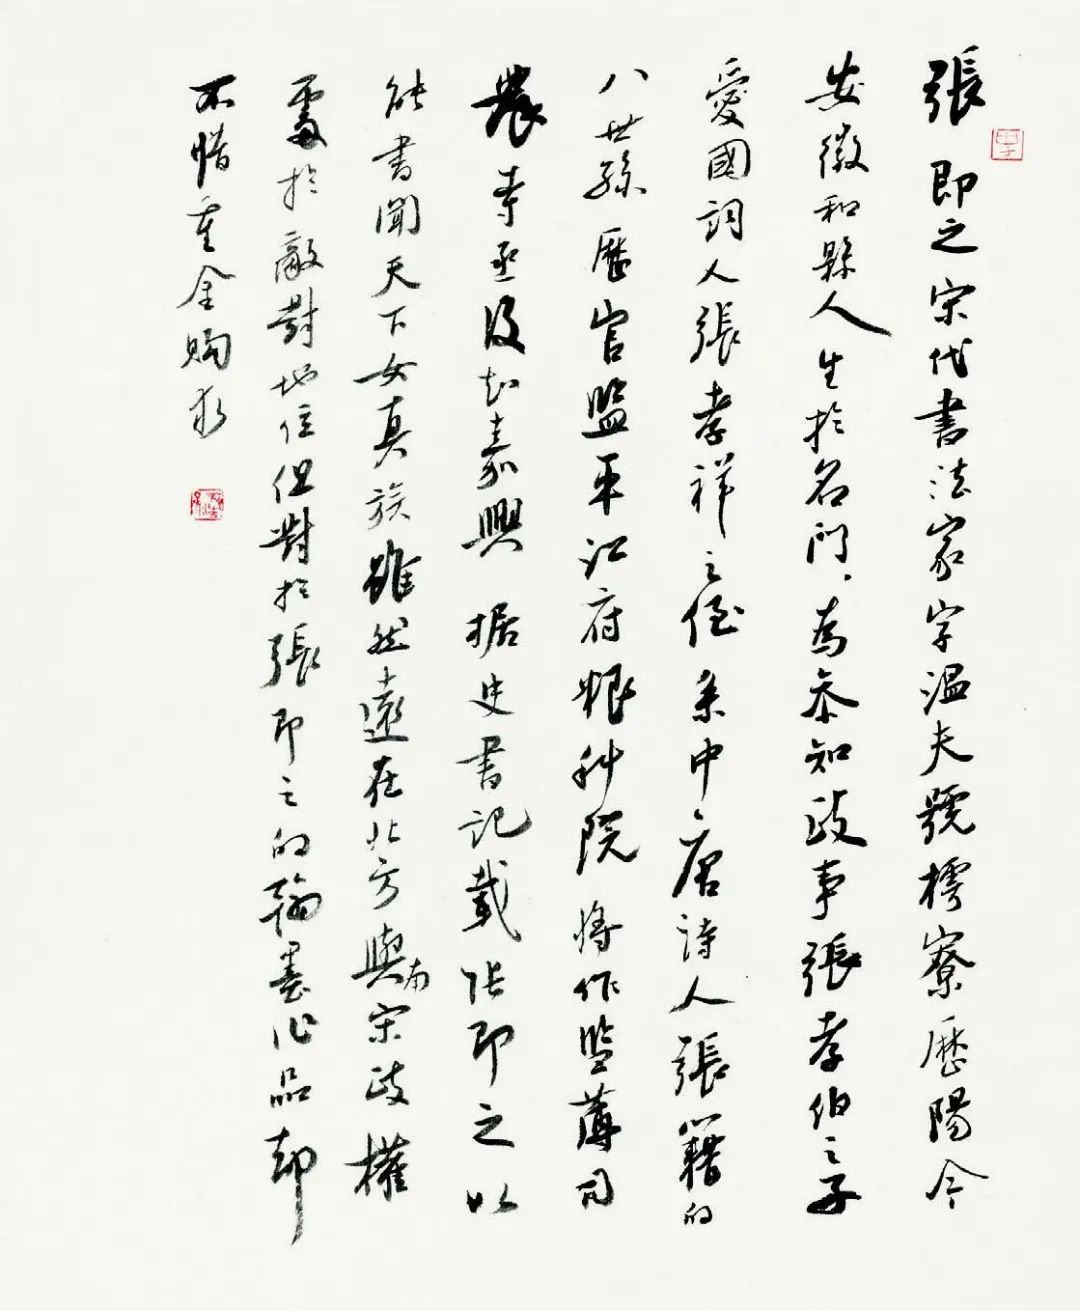 張即之宋代書法家字溫夫號樗寮歷陽今
安徽和縣人生於名門、為参知政事張孝伯之子
愛國詞人張孝祥之侄系中唐詩人張籍的
八世孫歷官監平江府粮科院將作監薄司
農寺丞後知嘉興據史書記載張即之以
能書聞天下女真族雖然遠在北方與南宋政權
處於敵對地位但對於張即之的翰墨作品却
不惜重金購求